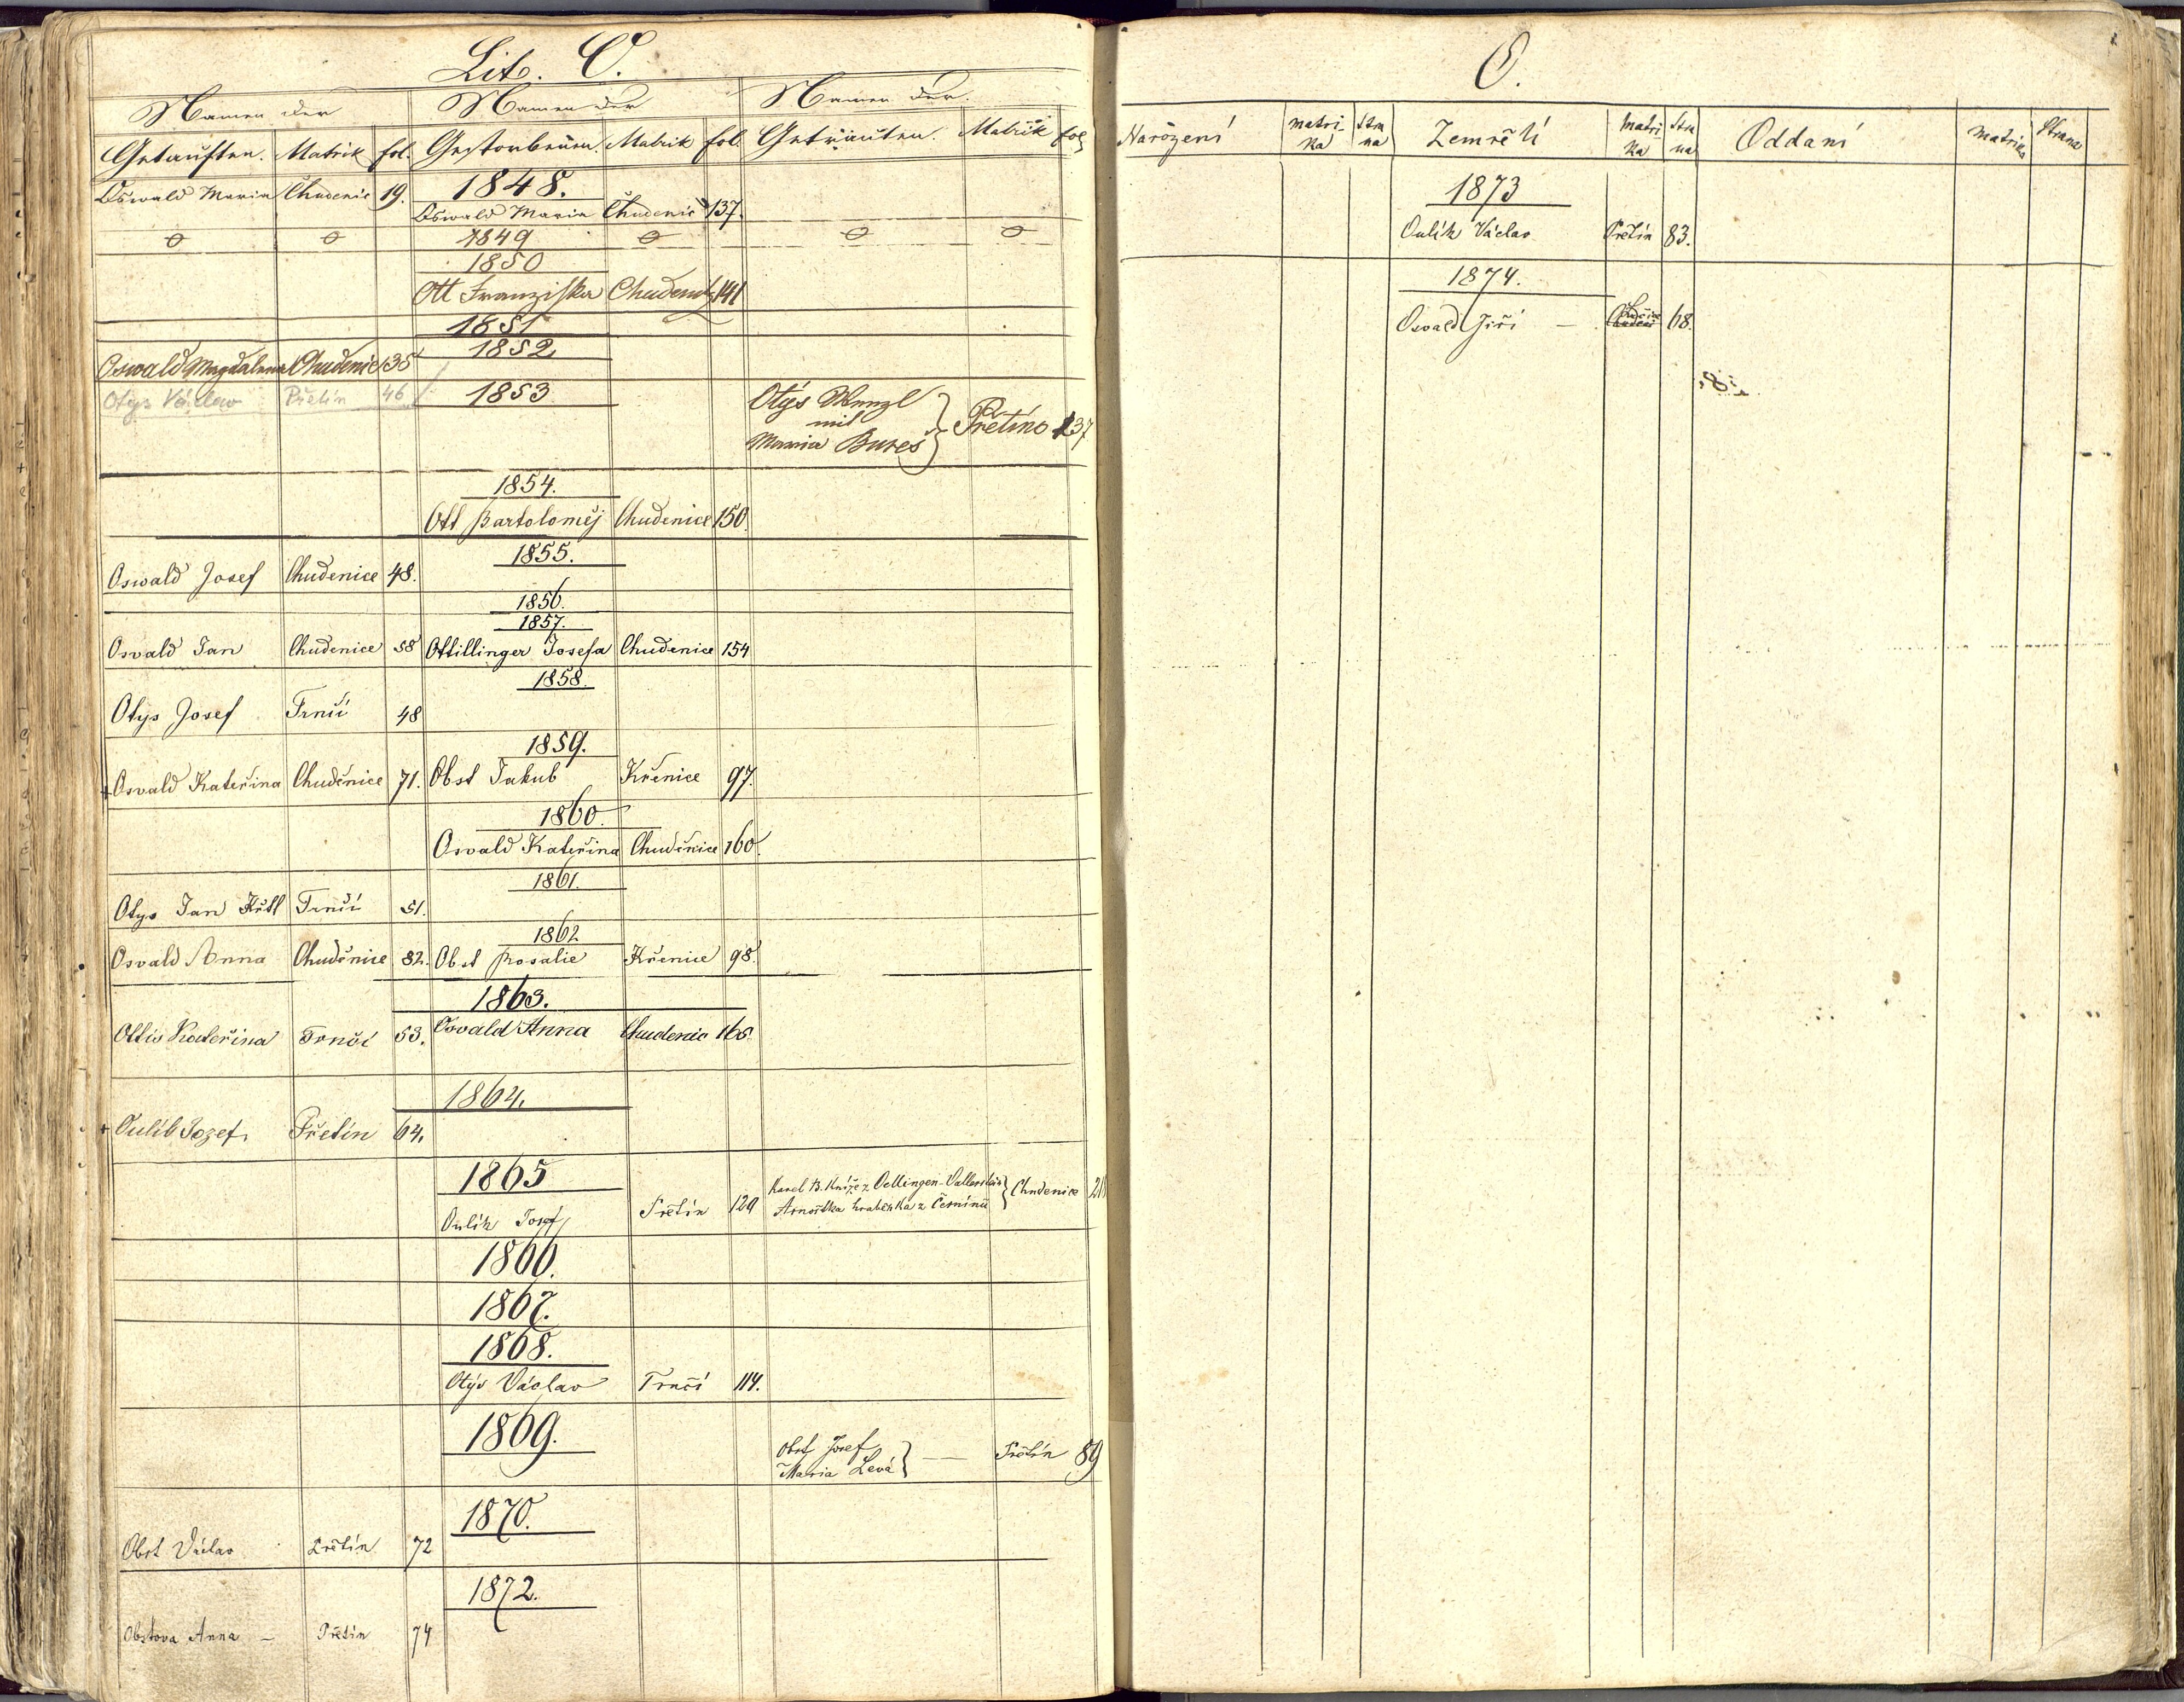 Lit. O.
Namen der Namen der Namen der
Getauften. Matrik fol. Gestorbenen. Matrik fol. Getrauten. Matrik fol
1848.
Oswald Maria Chudenic 19. Oswald Maria Chudenic 137.
1849
1850
Ott Franziska 141
1851
1852.
Oswald Magdalena Chudenic 35
Otys Václav Přetín 46 1853 Otys Wenzl
mit
Maria Bureš } Přetíno 137
1854.
Ott Bartoloměj Chudenice 150.
1855.
Oswald Josef Chudenice 48.
1856.
1857.
Osvald Jan Chudenice 58 Ottillinger Josefa Chudenice 154
1858.
Otys Josef Trnčí 48
1859.
+ Osvald Kateřina Chuděnice 71. Obst Jakub Křenice 97.
1860.
Osvald Kateřina Chuděnice 160.
1861.
Otys Jan Křtl Trnčí 51.
1862
Osvald Anna Chuděnice 82. Obst Rosalie Křenice 98.
1863.
Ottis Kateřina Trnčí 53. Osvald Anna Chudenic 165.
1864.
+ Oulík Jozef. Přetín 64.
1865
Oulík Josef Přetín 129 Karel B. kníže z Oettingen-Vallerštein
Arnoštka hraběnka z Černínů } Chudenice
1866.
1867.
1868.
Otýs Václav Trnčí 114.
1869.
Obst Josef
Maria Levá } — Přetín 89
1870.
Obst Václav Přetín 72
1872.
Obstova Anna — Přetín 74
O.
Narozeni matri-
ka Stra
na Zemřelí Matri
ka Stra
na Oddaní Matrika Strana
1873
Oulík Václav Přetín 83.
1874.
Osvald Jiří — 68.